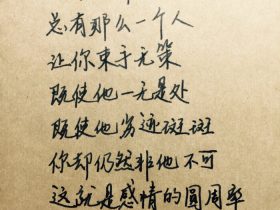 总有那么一个人
让你束手无策
既使他一无是处
既使他劣迹斑斑
你却仍然非他不可
这就是感情的圆周率